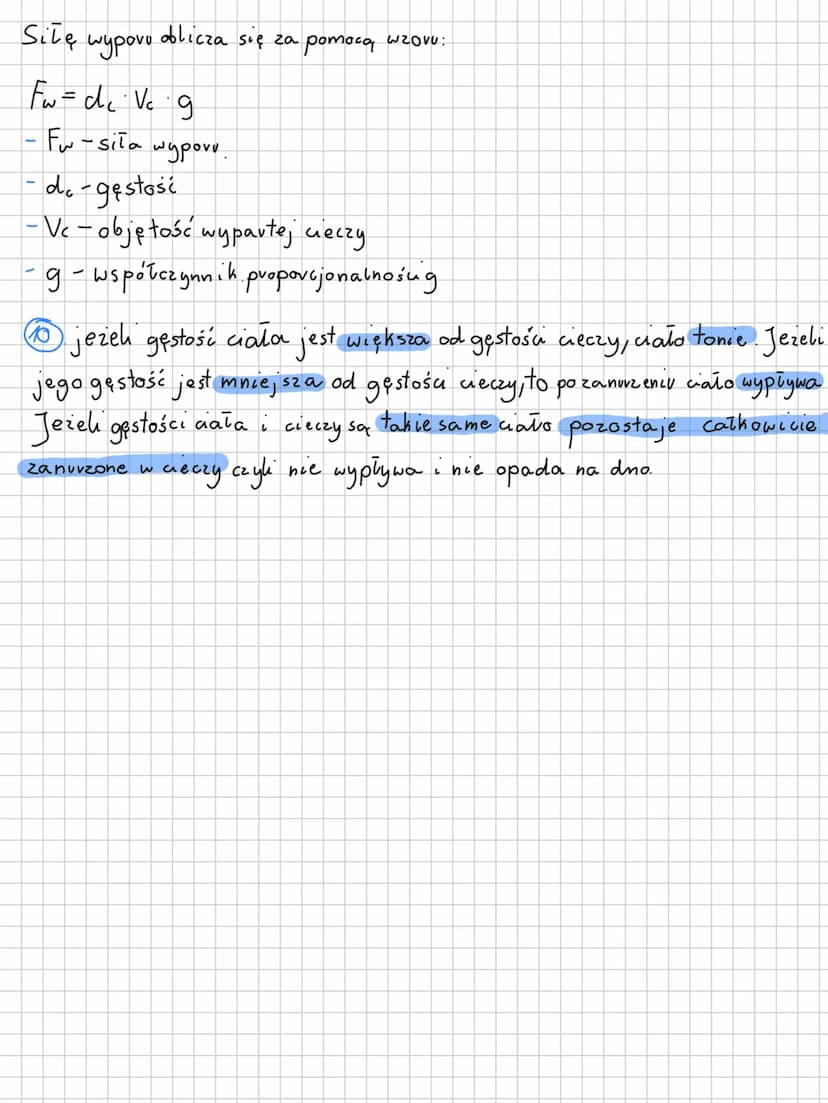 Siłę wyporu oblicza się za pomocą wzoru:
Fw = dc · Vc · g
- Fw - siła wyporu.
- dc - gęstość
- Vc - objętość wypartej cieczy
- g - współczynnik proporcjonalności g
10. jeżeli gęstość ciała jest większa od gęstości cieczy, ciało tonie. Jeżeli
jego gęstość jest mniejsza od gęstości cieczy, to po zanurzeniu ciało wypływa
Jeżeli gęstości ciała i cieczy są takie same ciało pozostaje całkowicie
zanurzone w cieczy czyli nie wypływa i nie opada na dno.